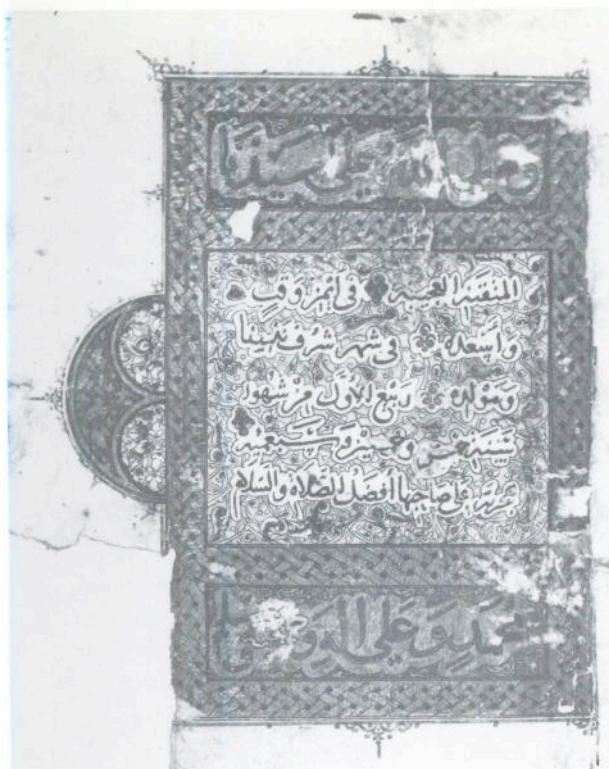 وصلى الله على سيدنا
المنقنه العجيبه في أيمن وقت
وأسعده في شهر شرف نبينا
ومولده ربيع الأول من شهور
سنة خمس وعشرين وسبعمئة
على صاحبها أفضل الصلاة والسلام
محمد وعلى اله وسلم